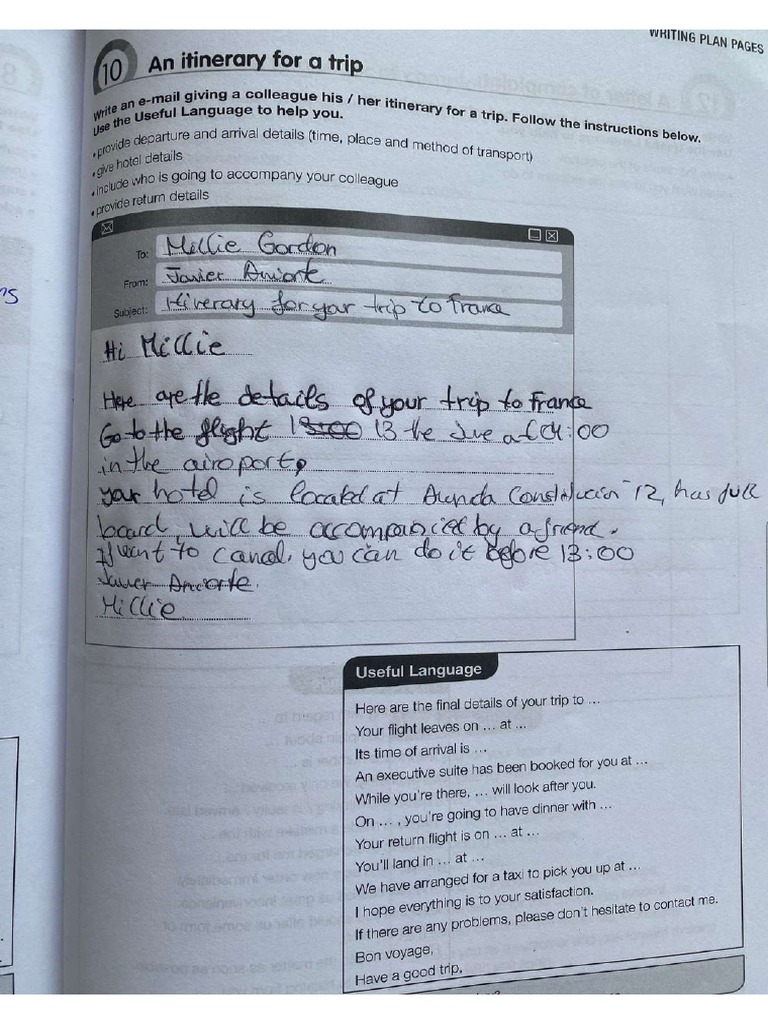 WRITING PLAN PAGES
10 An itinerary for a trip
Write an e-mail giving a colleague his / her itinerary for a trip. Follow the instructions below.
Use the Useful Language to help you.
• provide departure and arrival details (time, place and method of transport)
• give hotel details
• include who is going to accompany your colleague
• provide return details
To: Millie Gordon
From: Javier Aniorte
Subject: Itinerary for your trip to France
Hi Millie
Here are the details of your trip to France
Go to the flight 13:00 13 the at 04:00
in the airoport,
your hotel is located at Constitución 12, has full
board, will be accompanied by a friend.
want to cancel, you can do it before 13:00
Javier Aniorte.
Millie
Useful Language
Here are the final details of your trip to ...
Your flight leaves on ... at ...
Its time of arrival is ...
An executive suite has been booked for you at ...
While you're there, ... will look after you.
On ... , you're going to have dinner with ...
Your return flight is on ... at ...
You'll land in ... at ...
We have arranged for a taxi to pick you up at ...
I hope everything is to your satisfaction.
If there are any problems, please don't hesitate to contact me.
Bon voyage,
Have a good trip,